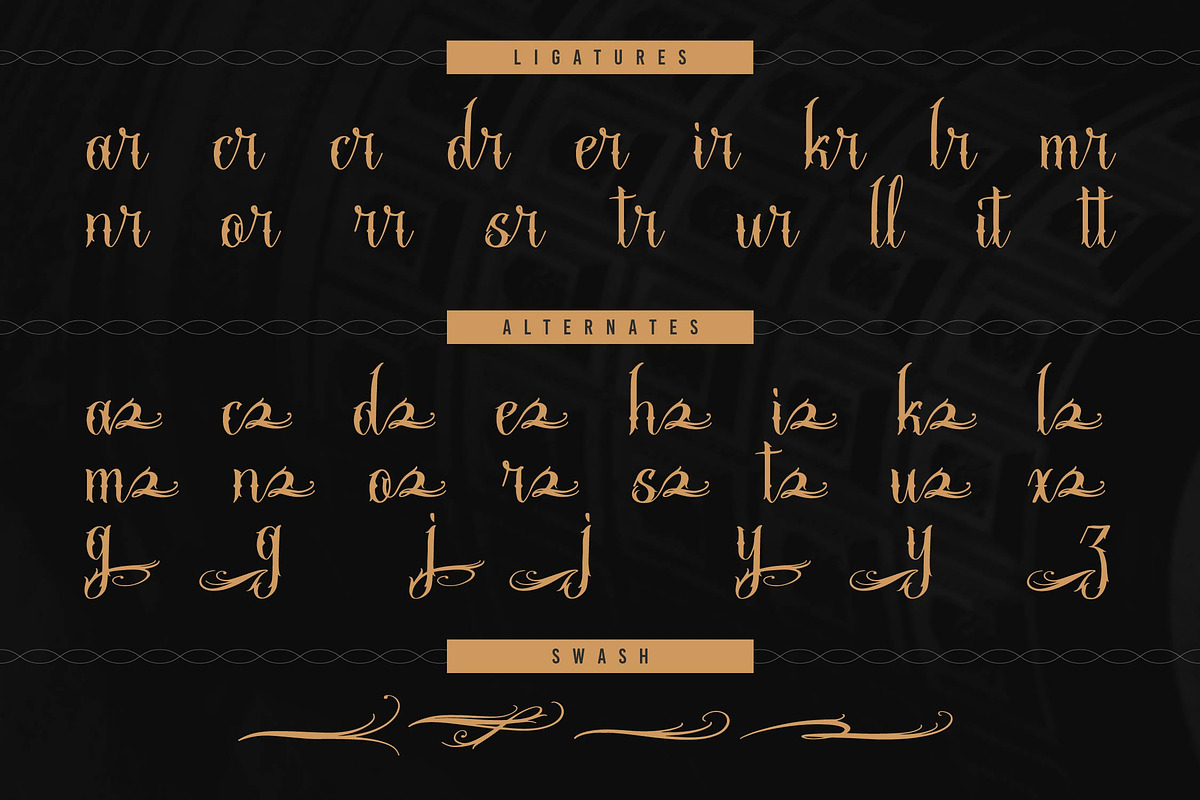 LIGATURES
ar cr cr dr er ir kr lr mr
nr or rr sr tr ur ll it tt
ALTERNATES
as cs ds es hs is ks ls
ms ns os rs ss ts us xs
g g j j y y z
SWASH